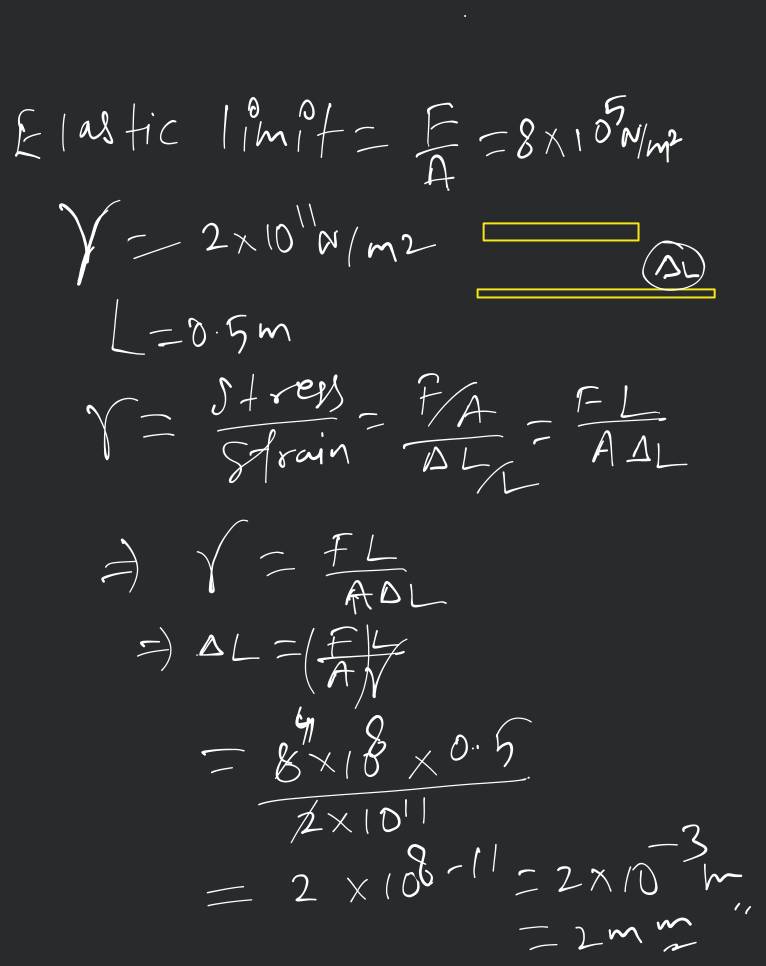 Elastic limit = F/A = 8×10⁵ N/m²
Y = 2×10¹¹ N/m2
ΔL
L = 0.5m
Y = Stress/Strain = (F/A)/(ΔL/L) = FL/(AΔL)
⇒ Y = FL/(AΔL)
⇒ ΔL = (F/A) L/Y
= (8⁴×10⁸ × 0.5)/(2×10¹¹)
= 2 × 10⁸⁻¹¹ = 2×10⁻³ m
= 2mm